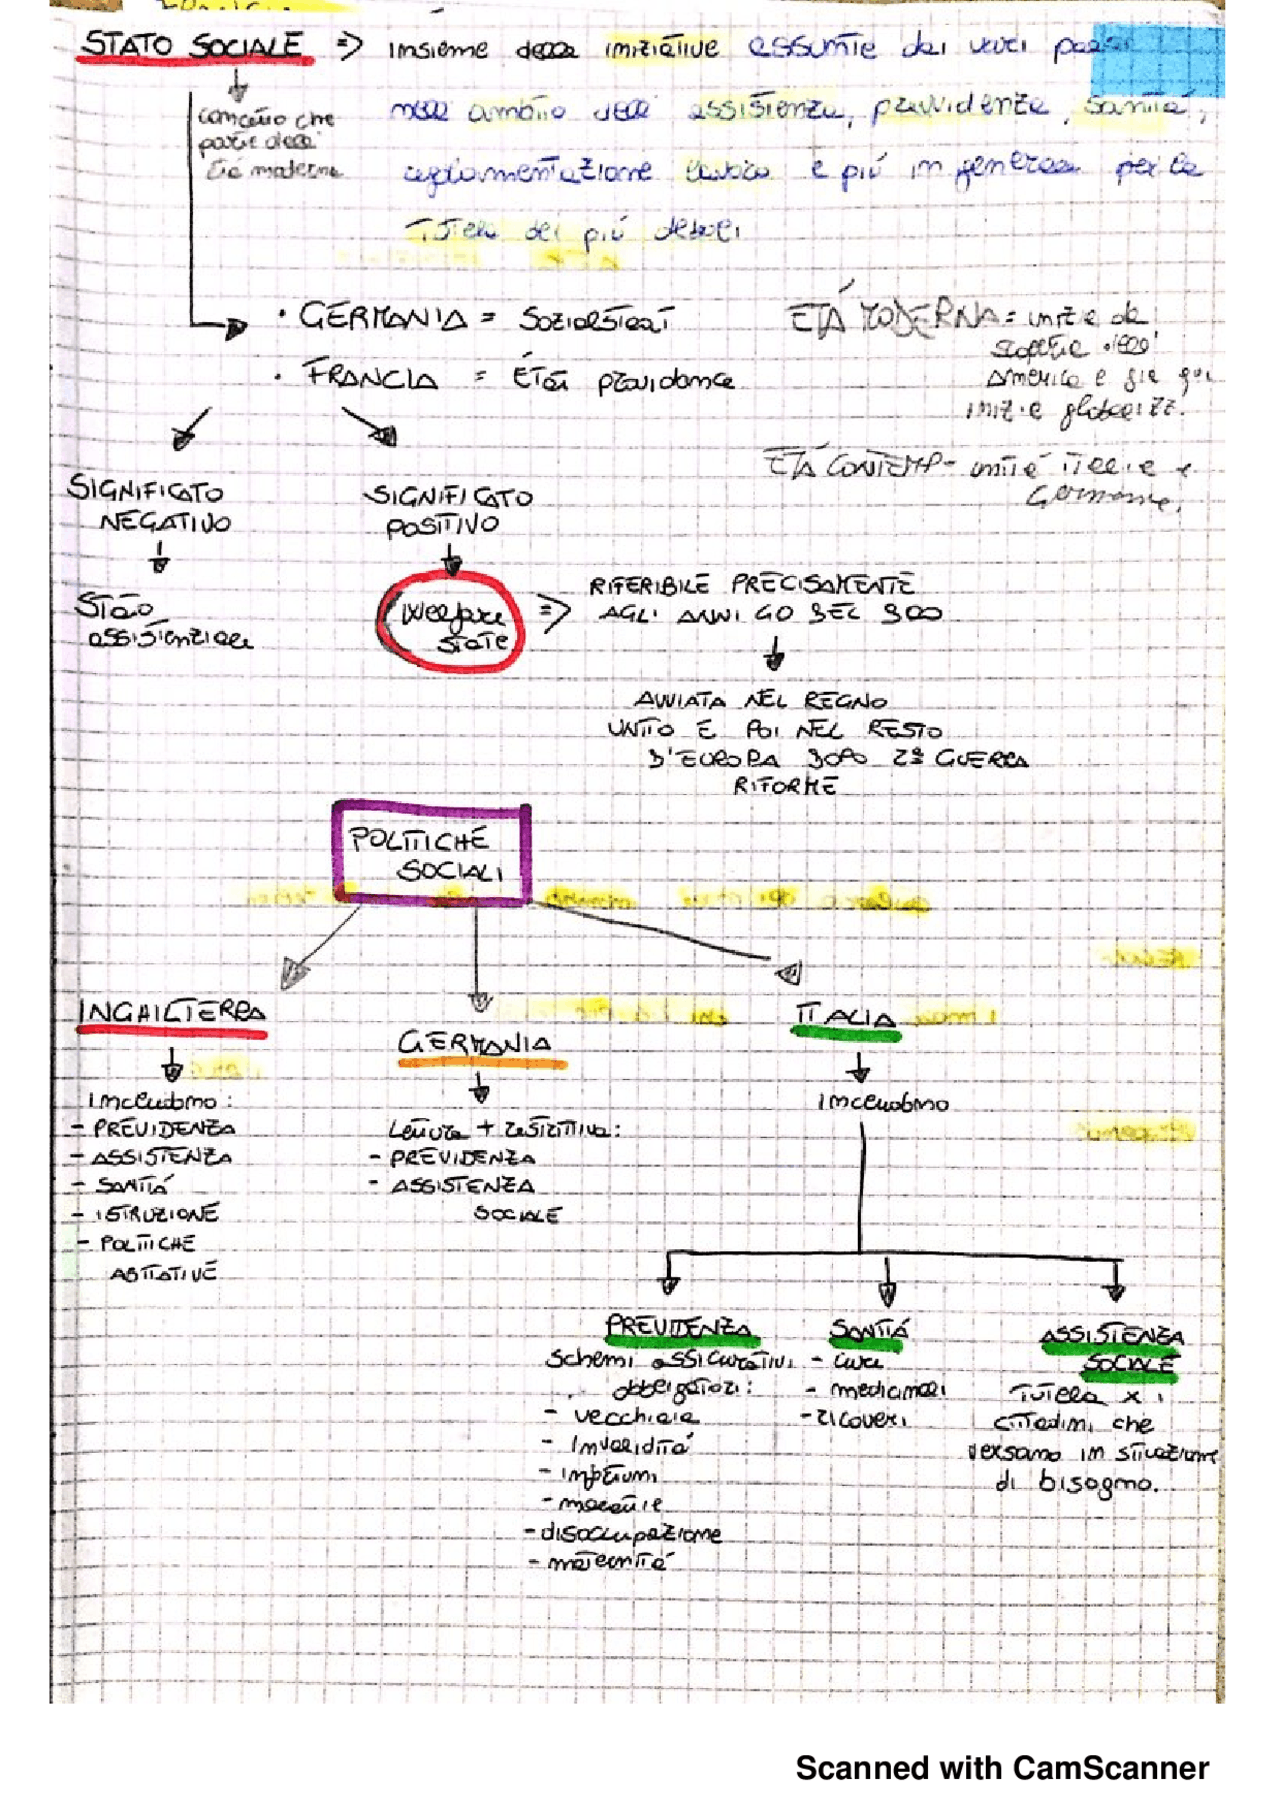 STATO SOCIALE => insieme delle iniziative assunte dai vari paesi
nell'ambito dell'assistenza, previdenza, sanità,
regolamentazione lavoro e più in generale per la
tutela dei più deboli
concetto che
parte dall'
età moderna
• GERMANIA = Sozialstaat
• FRANCIA = État providance
ETÁ MODERNA = inizia da
scoperta dell'
America e già qui
inizia globalizz.
ETÁ CONTEMP - unità Italia e
Germania.
SIGNIFICATO
NEGATIVO
SIGNIFICATO
POSITIVO
Stato
assistenziale
Welfare
State
=> RIFERIBILE PRECISAMENTE
AGLI ANNI 40 DEL 900
AVVIATA NEL REGNO
UNITO E POI NEL RESTO
D'EUROPA DOPO 2ª GUERRA
RIFORME
POLITICHE
SOCIALI
INGHILTERRA
GERMANIA
ITALIA
includono:
- PREVIDENZA
- ASSISTENZA
- SANITÁ
- ISTRUZIONE
- POLITICHE
ABITATIVE
Lettura + restrittiva:
- PREVIDENZA
- ASSISTENZA
SOCIALE
includono
PREVIDENZA
schemi assicurativi
obbligatori:
- vecchiaia
- invalidità
- infortuni
- malattie
- disoccupazione
- maternità
SANITÁ
- cure
- medicinali
- ricoveri
ASSISTENZA
SOCIALE
tutela x i
cittadini che
versano in situazione
di bisogno.
Scanned with CamScanner